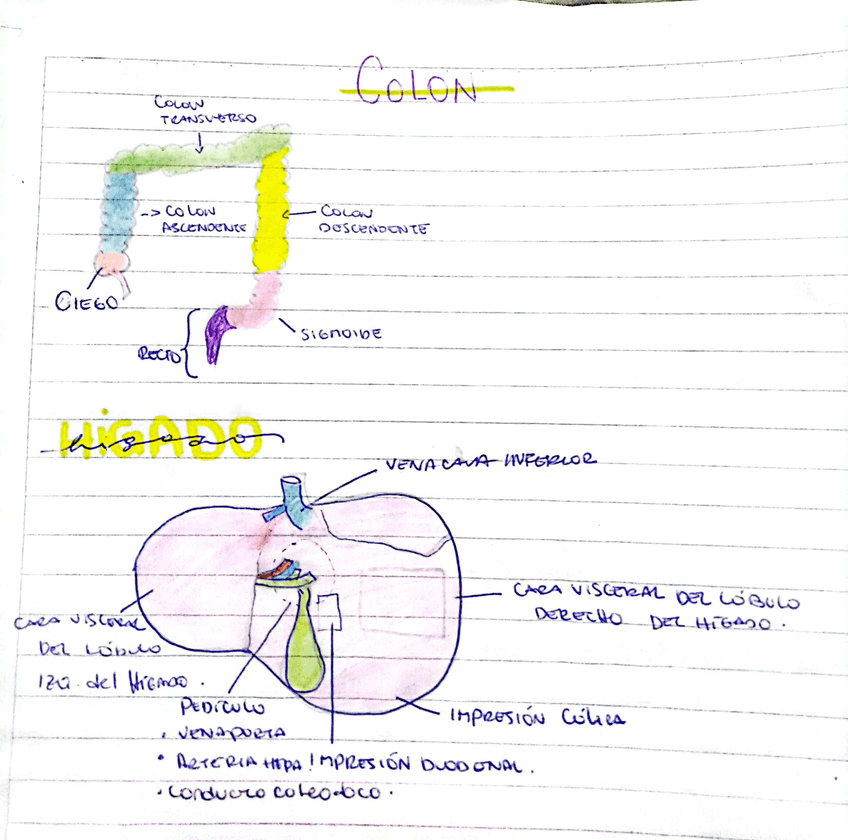 COLON
COLON
TRANSVERSO
-> COLON
ASCENDENTE
COLON
DESCENDENTE
CIEGO
SIGMOIDE
RECTO
HÍGADO
hígado
VENA CAVA INFERIOR
CARA VISCERAL DEL LÓBULO
DERECHO DEL HÍGADO.
CARA VISCERAL
DEL LÓBULO
IZQ. del HÍGADO.
PEDICULO
. VENA PORTA
• ARTERIA HEPA
• CONDUCTO COLEDOCO.
IMPRESIÓN DUODENAL.
IMPRESIÓN CÓLICA